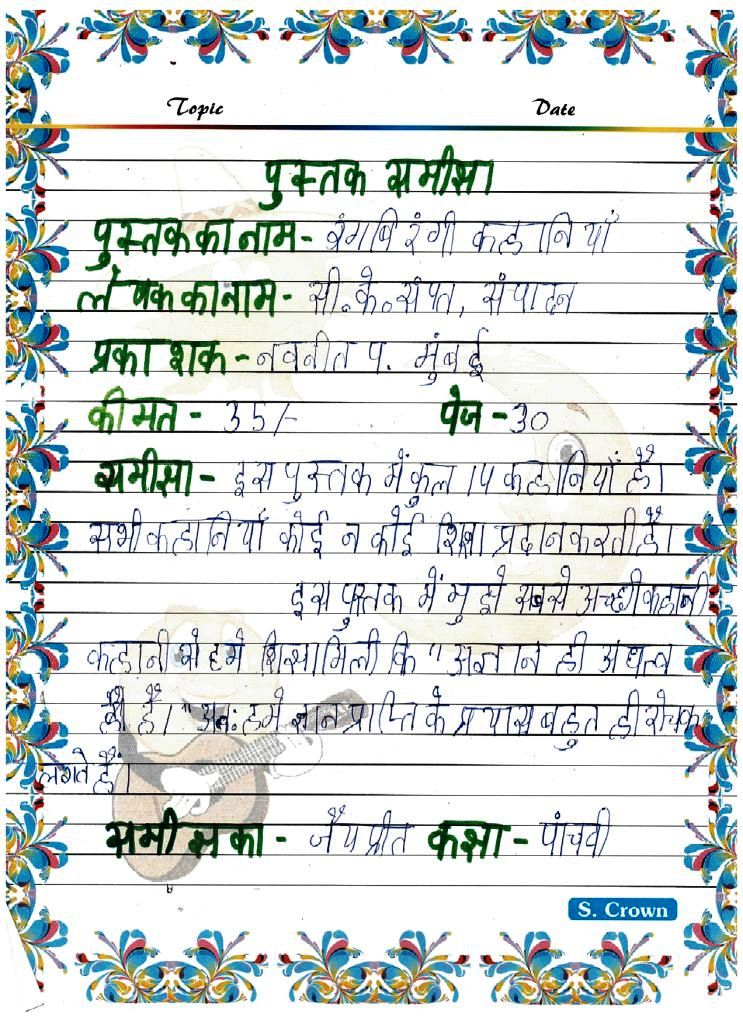 Topic Date
पुस्तक समीसा
पुस्तक का नाम - रंगबिरंगी कहानियाँ
लेषक का नाम - सी.के.संपत, संपादन
प्रकाशक - नवनीत प. मुंबई
कीमत - 35/- पेज - 30
समीसा - इस पुस्तक में कुल 14 कहानियाँ हैं।
सभी कहानियाँ कोई न कोई शिक्षा प्रदान करती हैं।
इस पुस्तक में मुझे सबसे अच्छी कहानी
कहानी से हमे शिसा मिली कि "अज्ञान ही अंधत्व
ही हैं।" अतः हमे ज्ञान प्राप्ति के प्रयास बहुत ही रोचक
लगते हैं।
समीसका - जैपप्रीत कक्षा - पांचवी
S. Crown